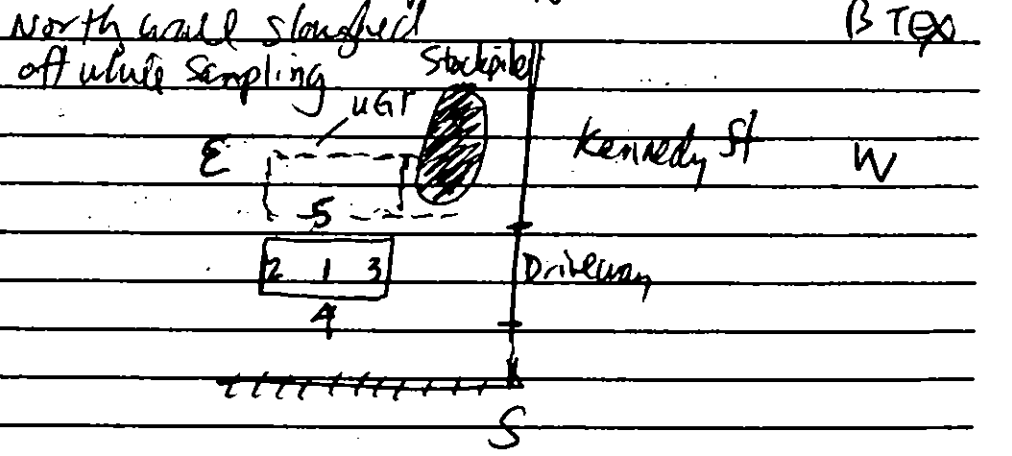 North wall sloughed BTEX
off while sampling Stockpile
UGT
E Kennedy St W
5
2 1 3 Driveway
4
S